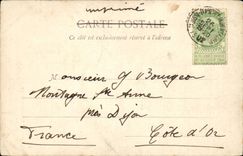 imprimé
CARTE POSTALE
Ce côté est exclusivement réservé à l'adresse
Monsieur G Bourgeon
Montagne Ste Anne
près Dijon
France Côte d'Or